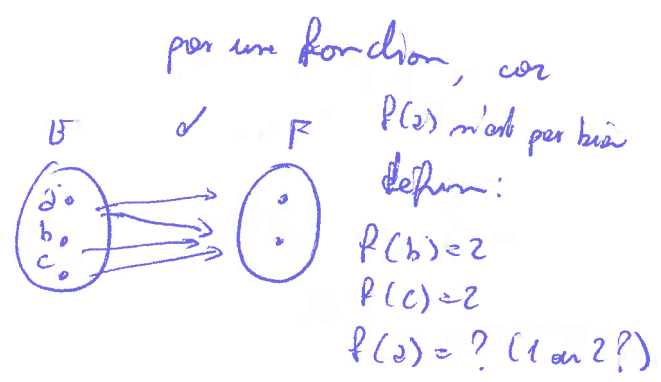 pas une fonction, car
E f F
f(a) n'est pas bien
défini :
a
b
c
f(b)=2
f(c)=2
f(a) = ? (1 ou 2 ?)